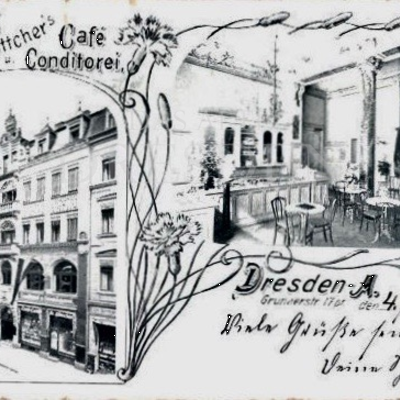 ttcher's Café
u. Conditorei.
Dresden-A.
Grunaerstr. 17pt. den 4.
Viele Grüße sen
Deine